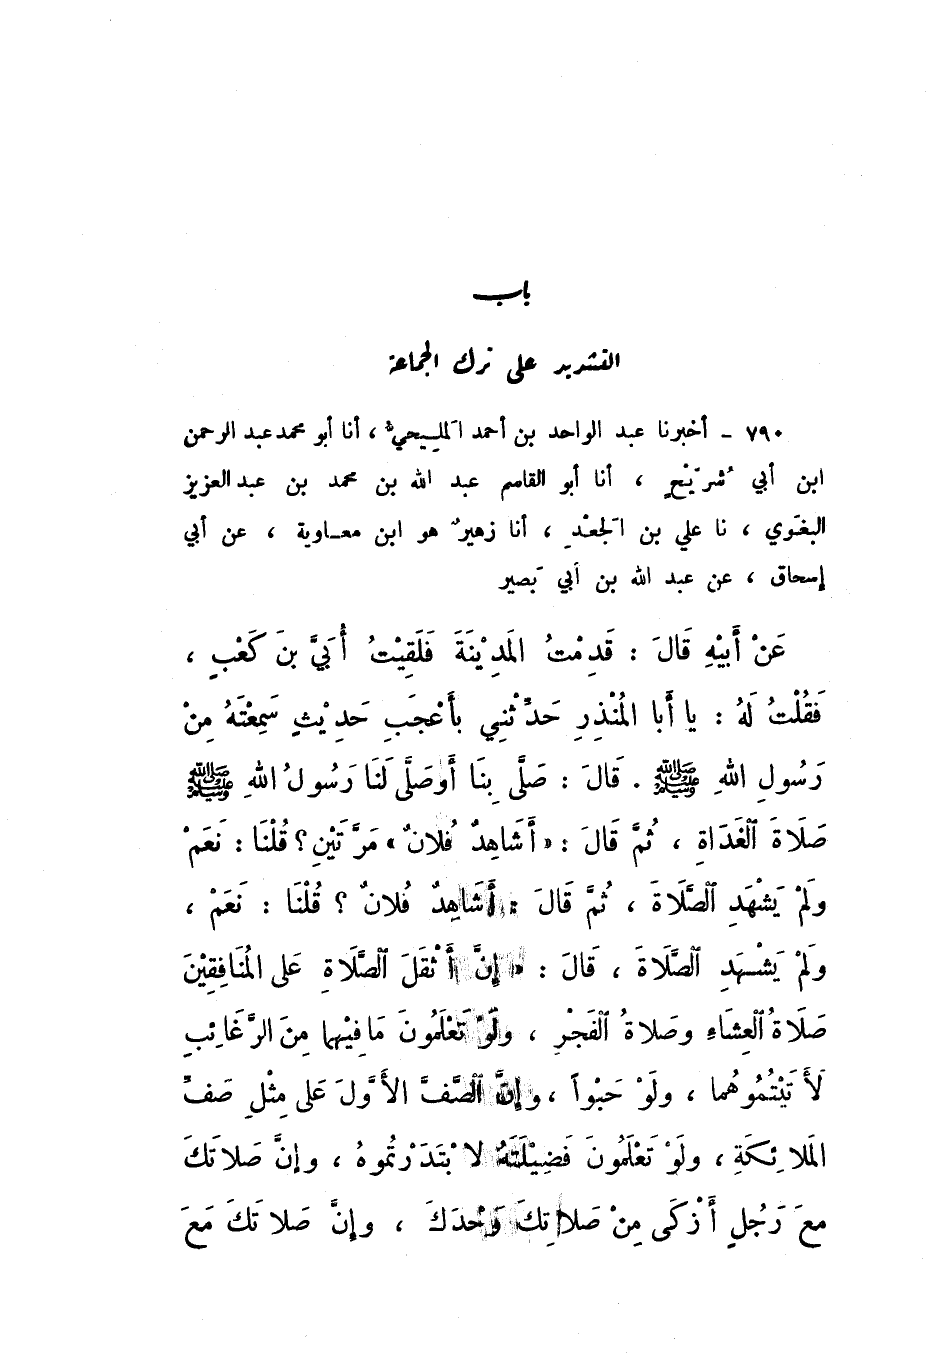 باب
التشديد على ترك الجماعة
٧٩٠ - أخبرنا عبد الواحد بن أحمد المَلِيحيُّ ، أنا أبو محمد عبد الرحمن
ابن أبي شُرَيْحٍ ، أنا أبو القاسم عبد الله بن محمد بن عبد العزيز
البغَوي ، نا علي بن الجَعْدِ ، أنا زهيرٌ هو ابن معاوية ، عن أبي
إسحاق ، عن عبد الله بن أبي بَصير
عَنْ أَبِيْهِ قَالَ : قَدِمْتُ المَدِيْنَةَ فَلَقِيْتُ أُبَيَّ بنَ كَعْبٍ ،
فَقُلْتُ لَهُ : يا أَبا المُنْذِرِ حَدِّثْنِي بأَعْجَبِ حَدِيْثٍ سَمِعْتَهُ مِنْ
رَسُولِ اللهِ ﷺ . قَالَ : صَلَّى بِنَا أَو صَلَّى لَنَا رَسُولُ اللهِ ﷺ
صَلَاةَ الغَدَاةِ ، ثُمَّ قَالَ : « أَشَاهِدٌ فُلانٌ » مَرَّتَيْنِ ؟ قُلْنَا : نَعَمْ
ولَمْ يَشْهَدِ الصَّلَاةَ ، ثُمَّ قَالَ : أَشَاهِدٌ فُلانٌ ؟ قُلْنَا : نَعَمْ ،
ولَمْ يَشْهَدِ الصَّلَاةَ ، قَالَ : « إِنَّ أَثْقَلَ الصَّلَاةِ عَلى المُنَافِقِيْنَ
صَلَاةُ العِشَاءِ وصَلاةُ الفَجْرِ ، ولَوْ تَعْلَمُونَ مَا فِيْهِما مِنَ الرَّغَائِبِ
لأَتَيْتُمُوهُما ، ولَوْ حَبْواً ، وإِنَّ الصَّفَّ الأَوَّلَ عَلى مِثْلِ صَفِّ
المَلائِكَةِ ، ولَوْ تَعْلَمُونَ فَضِيْلَتَهُ لابْتَدَرْتُموهُ ، وإنَّ صَلاتَكَ
معَ رَجُلٍ أَزْكَى مِنْ صَلَاتِكَ وَحْدَكَ ، وإِنَّ صَلاتَكَ مَعَ